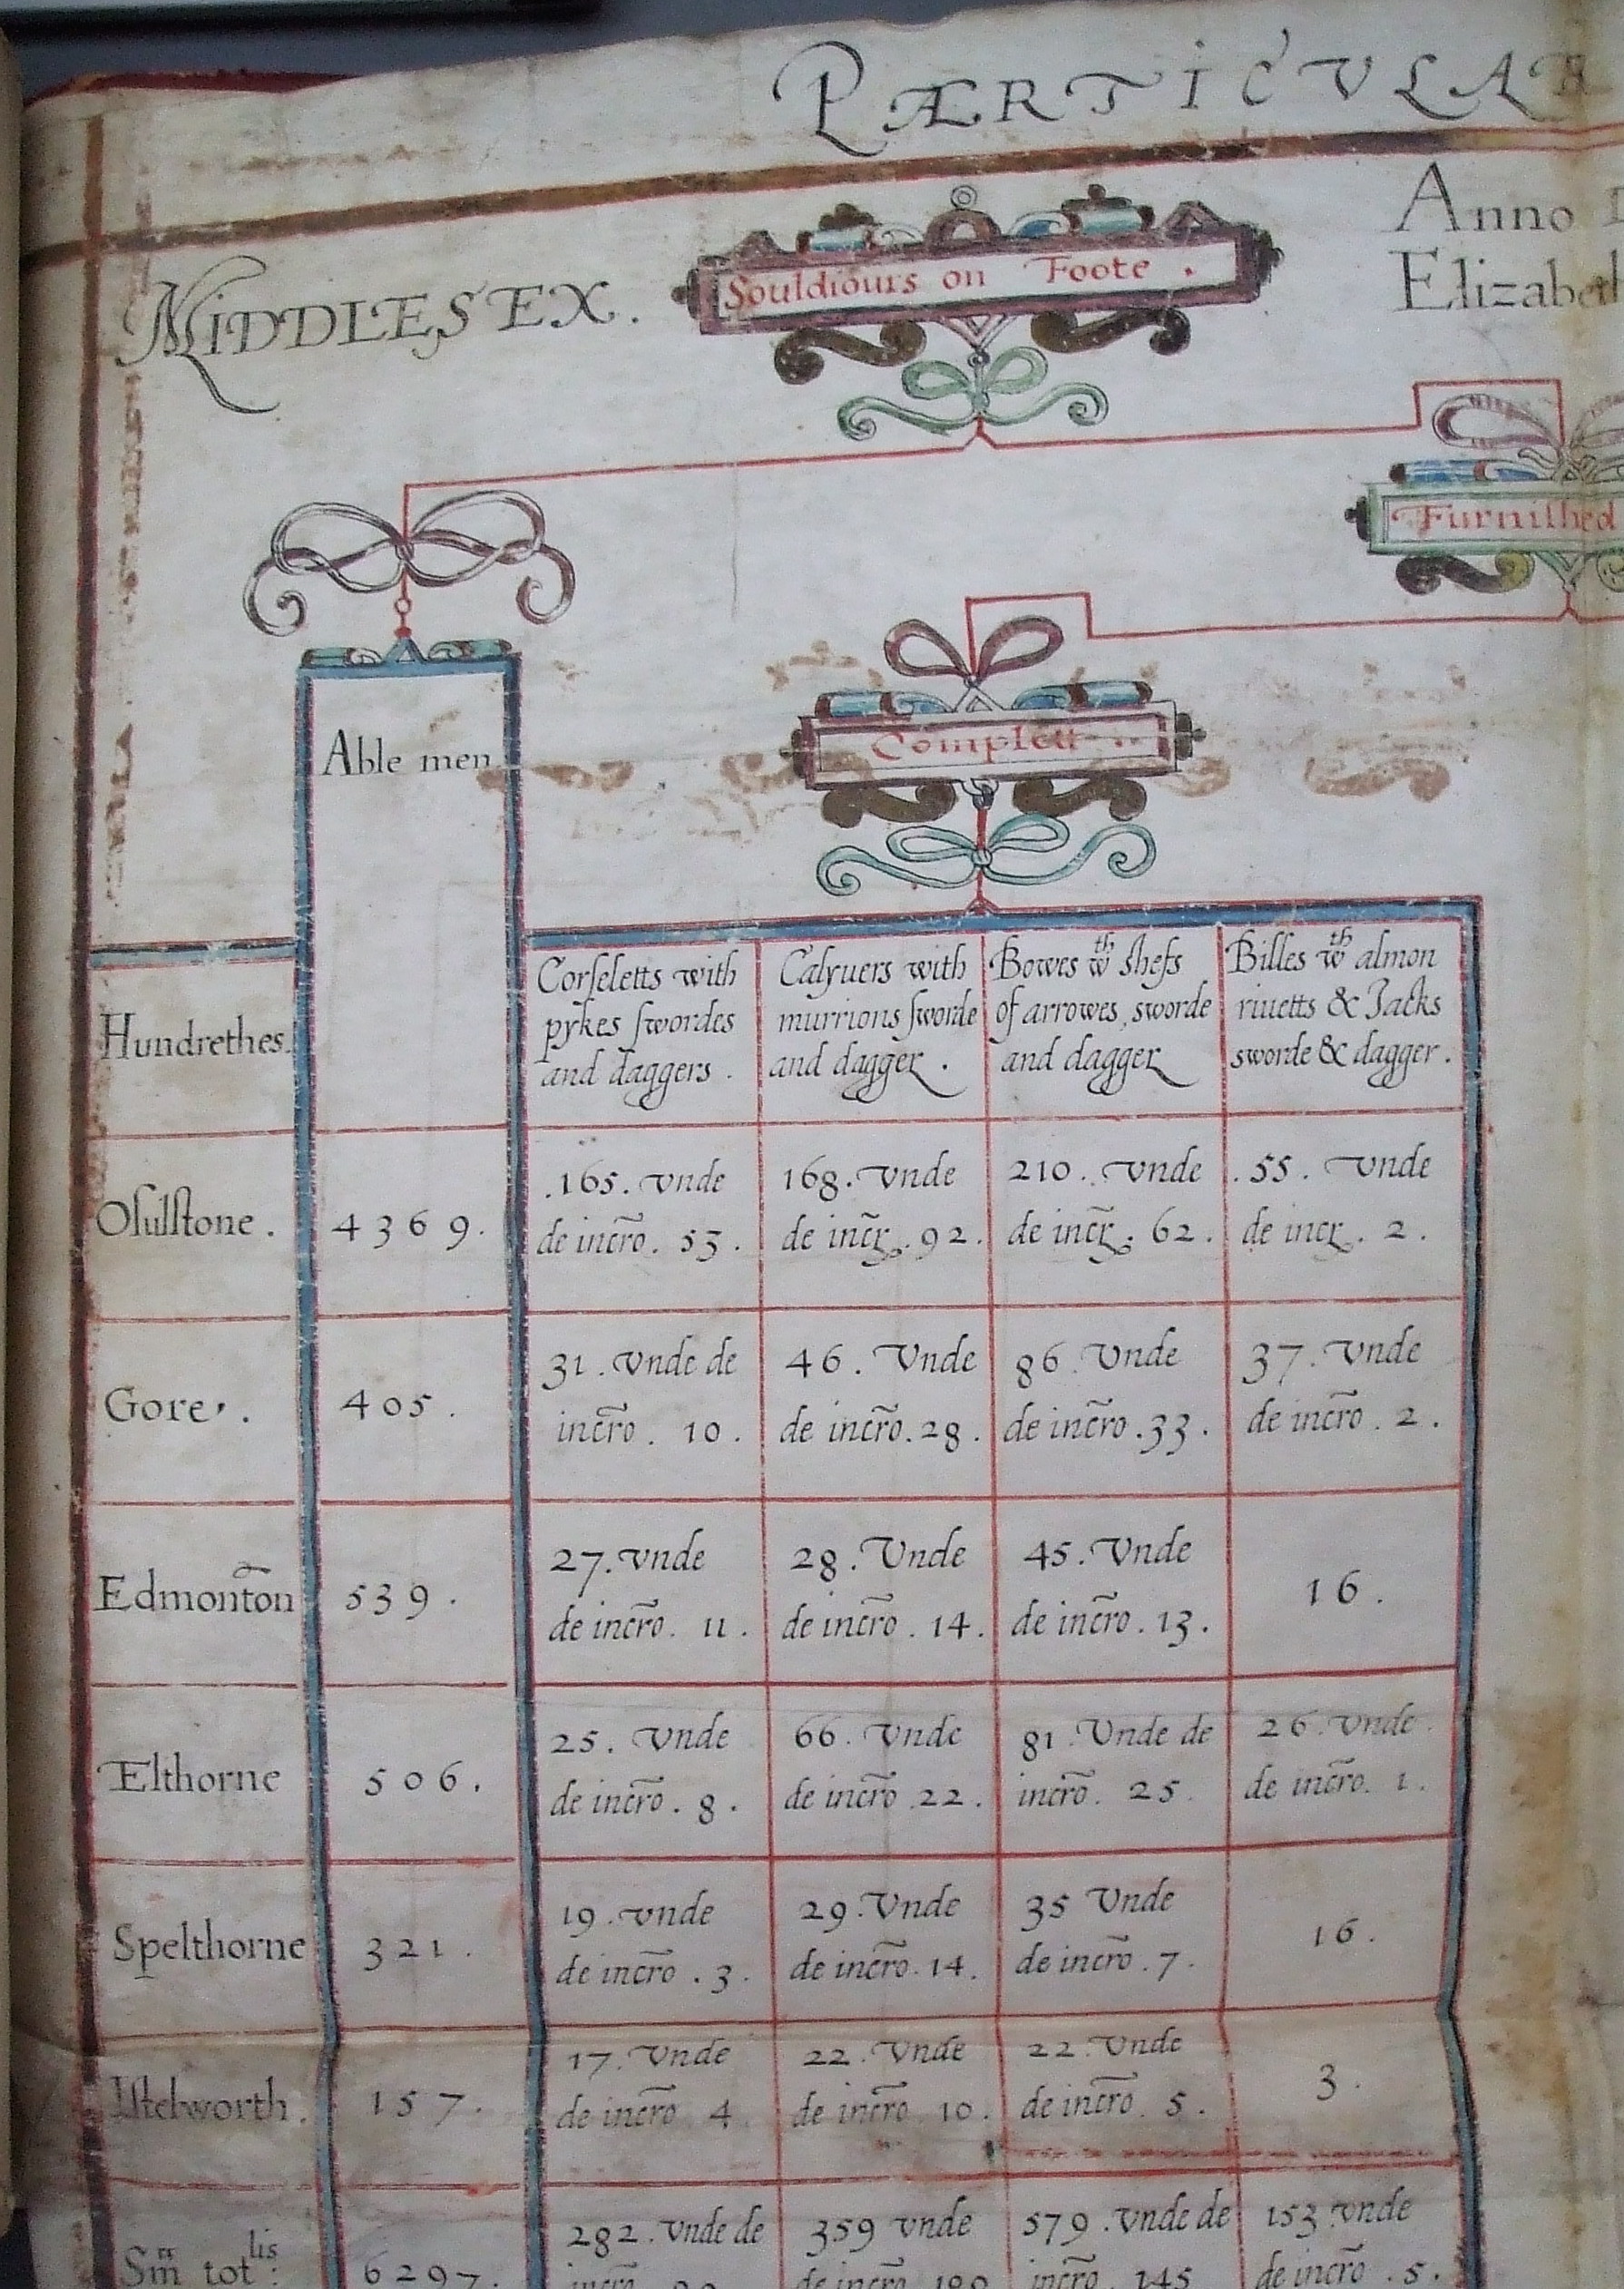 PÆRTICVLAR
MIDDLESEX.
Souldiours on Foote.
Anno
Elizabeth
Furnished
Complett
Able men
Hundrethes.
Corseletts with
pykes swordes
and daggers.
Calyuers with
murrions sworde
and dagger.
Bowes wth shefs
of arrowes, sworde
and dagger
Billes wth almon
riuetts & Jacks
sworde & dagger.
Osulstone.
4369.
.165. vnde
de incro. 53.
168. vnde
de incr. 92.
210. vnde
de incr. 62.
.55. vnde
de incr. 2.
Gore.
405.
31. vnde de
incro. 10.
46. Vnde
de incro. 28.
86 Vnde
de incro. 33.
37. vnde
de incro. 2.
Edmonton
539.
27. vnde
de incro. 11.
28. Vnde
de incro. 14.
45. Vnde
de incro. 13.
16.
Elthorne
506.
25. Vnde
de incro. 8.
66. Vnde
de incro. 22.
81 Vnde de
incro. 25
26 vnde
de incro. 1.
Spelthorne
321.
19. vnde
de incro. 3.
29. Vnde
de incro. 14.
35 Vnde
de incro. 7.
16.
Istelworth.
157.
17. Vnde
de incro 4
22. Vnde
de incro 10.
22. Vnde
de incro. 5.
3.
Sm̃ totlis:
6297.
282. Vnde de
incro
359 vnde
de incro 180
579. Vnde de
incro. 145
153 vnde
de incro. 5.